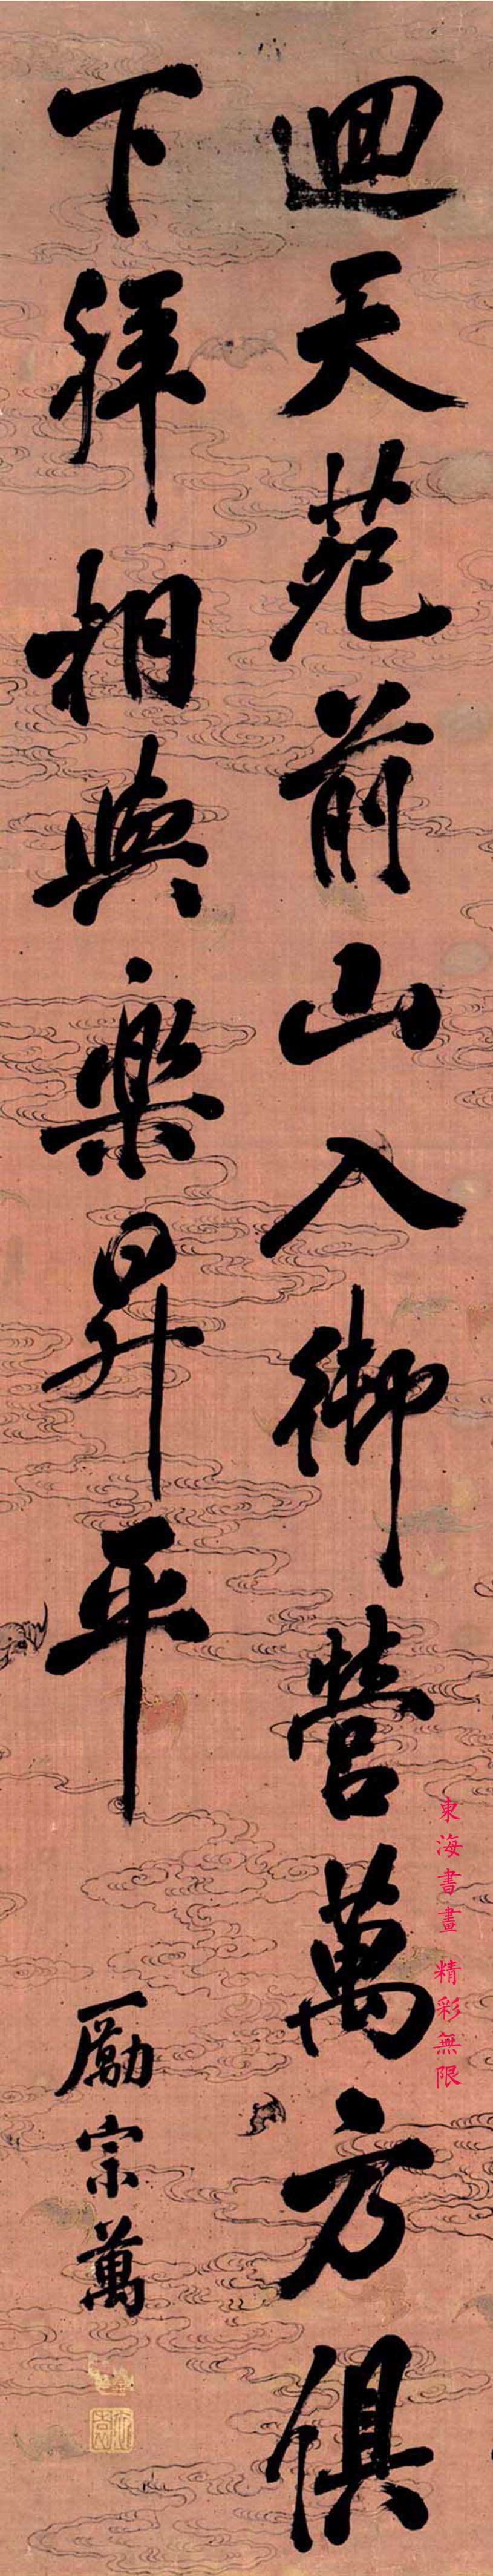 迴天苑前山入御營萬方俱
下拜相與樂昇平
勵宗萬
東海書畫 精彩無限